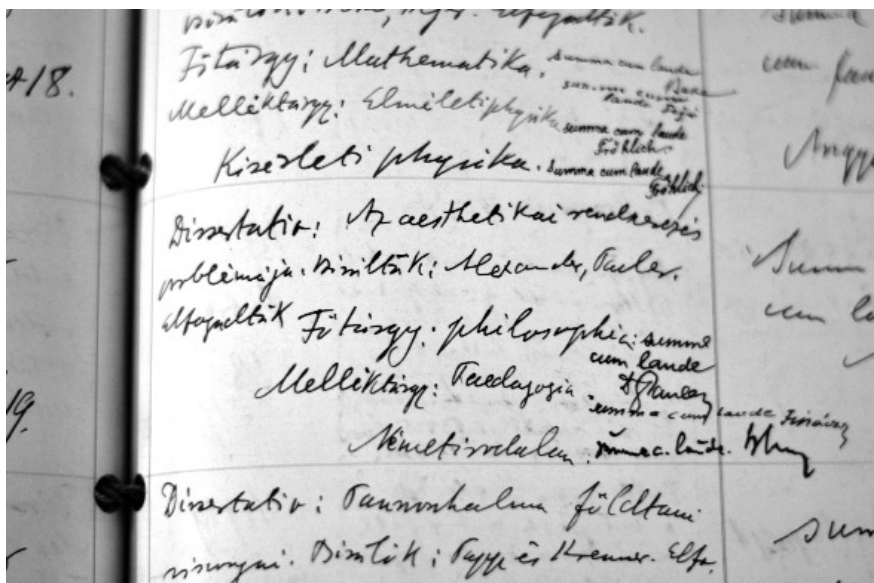 Főtárgy: Mathematika. summa cum laude
Melléktárgy: Elméleti physika summa cum laude Fröhlich
Kisérleti physika. summa cum laude Fröhlich
Dissertatio: Az aesthetikai rendszerezés
problémája. Birálták: Alexander, Pauler.
Elfogadták Főtárgy: philosophia: summa
cum laude
Melléktárgy: Paedagogia Dr Pauler
summa cum laude
Német irodalom. summa c. laude.
Dissertatio: Pannonhalma földtani
viszonyai. Birálták: Papp és Krenner. Elfo.
18.
19.
Summ
cum la
sum